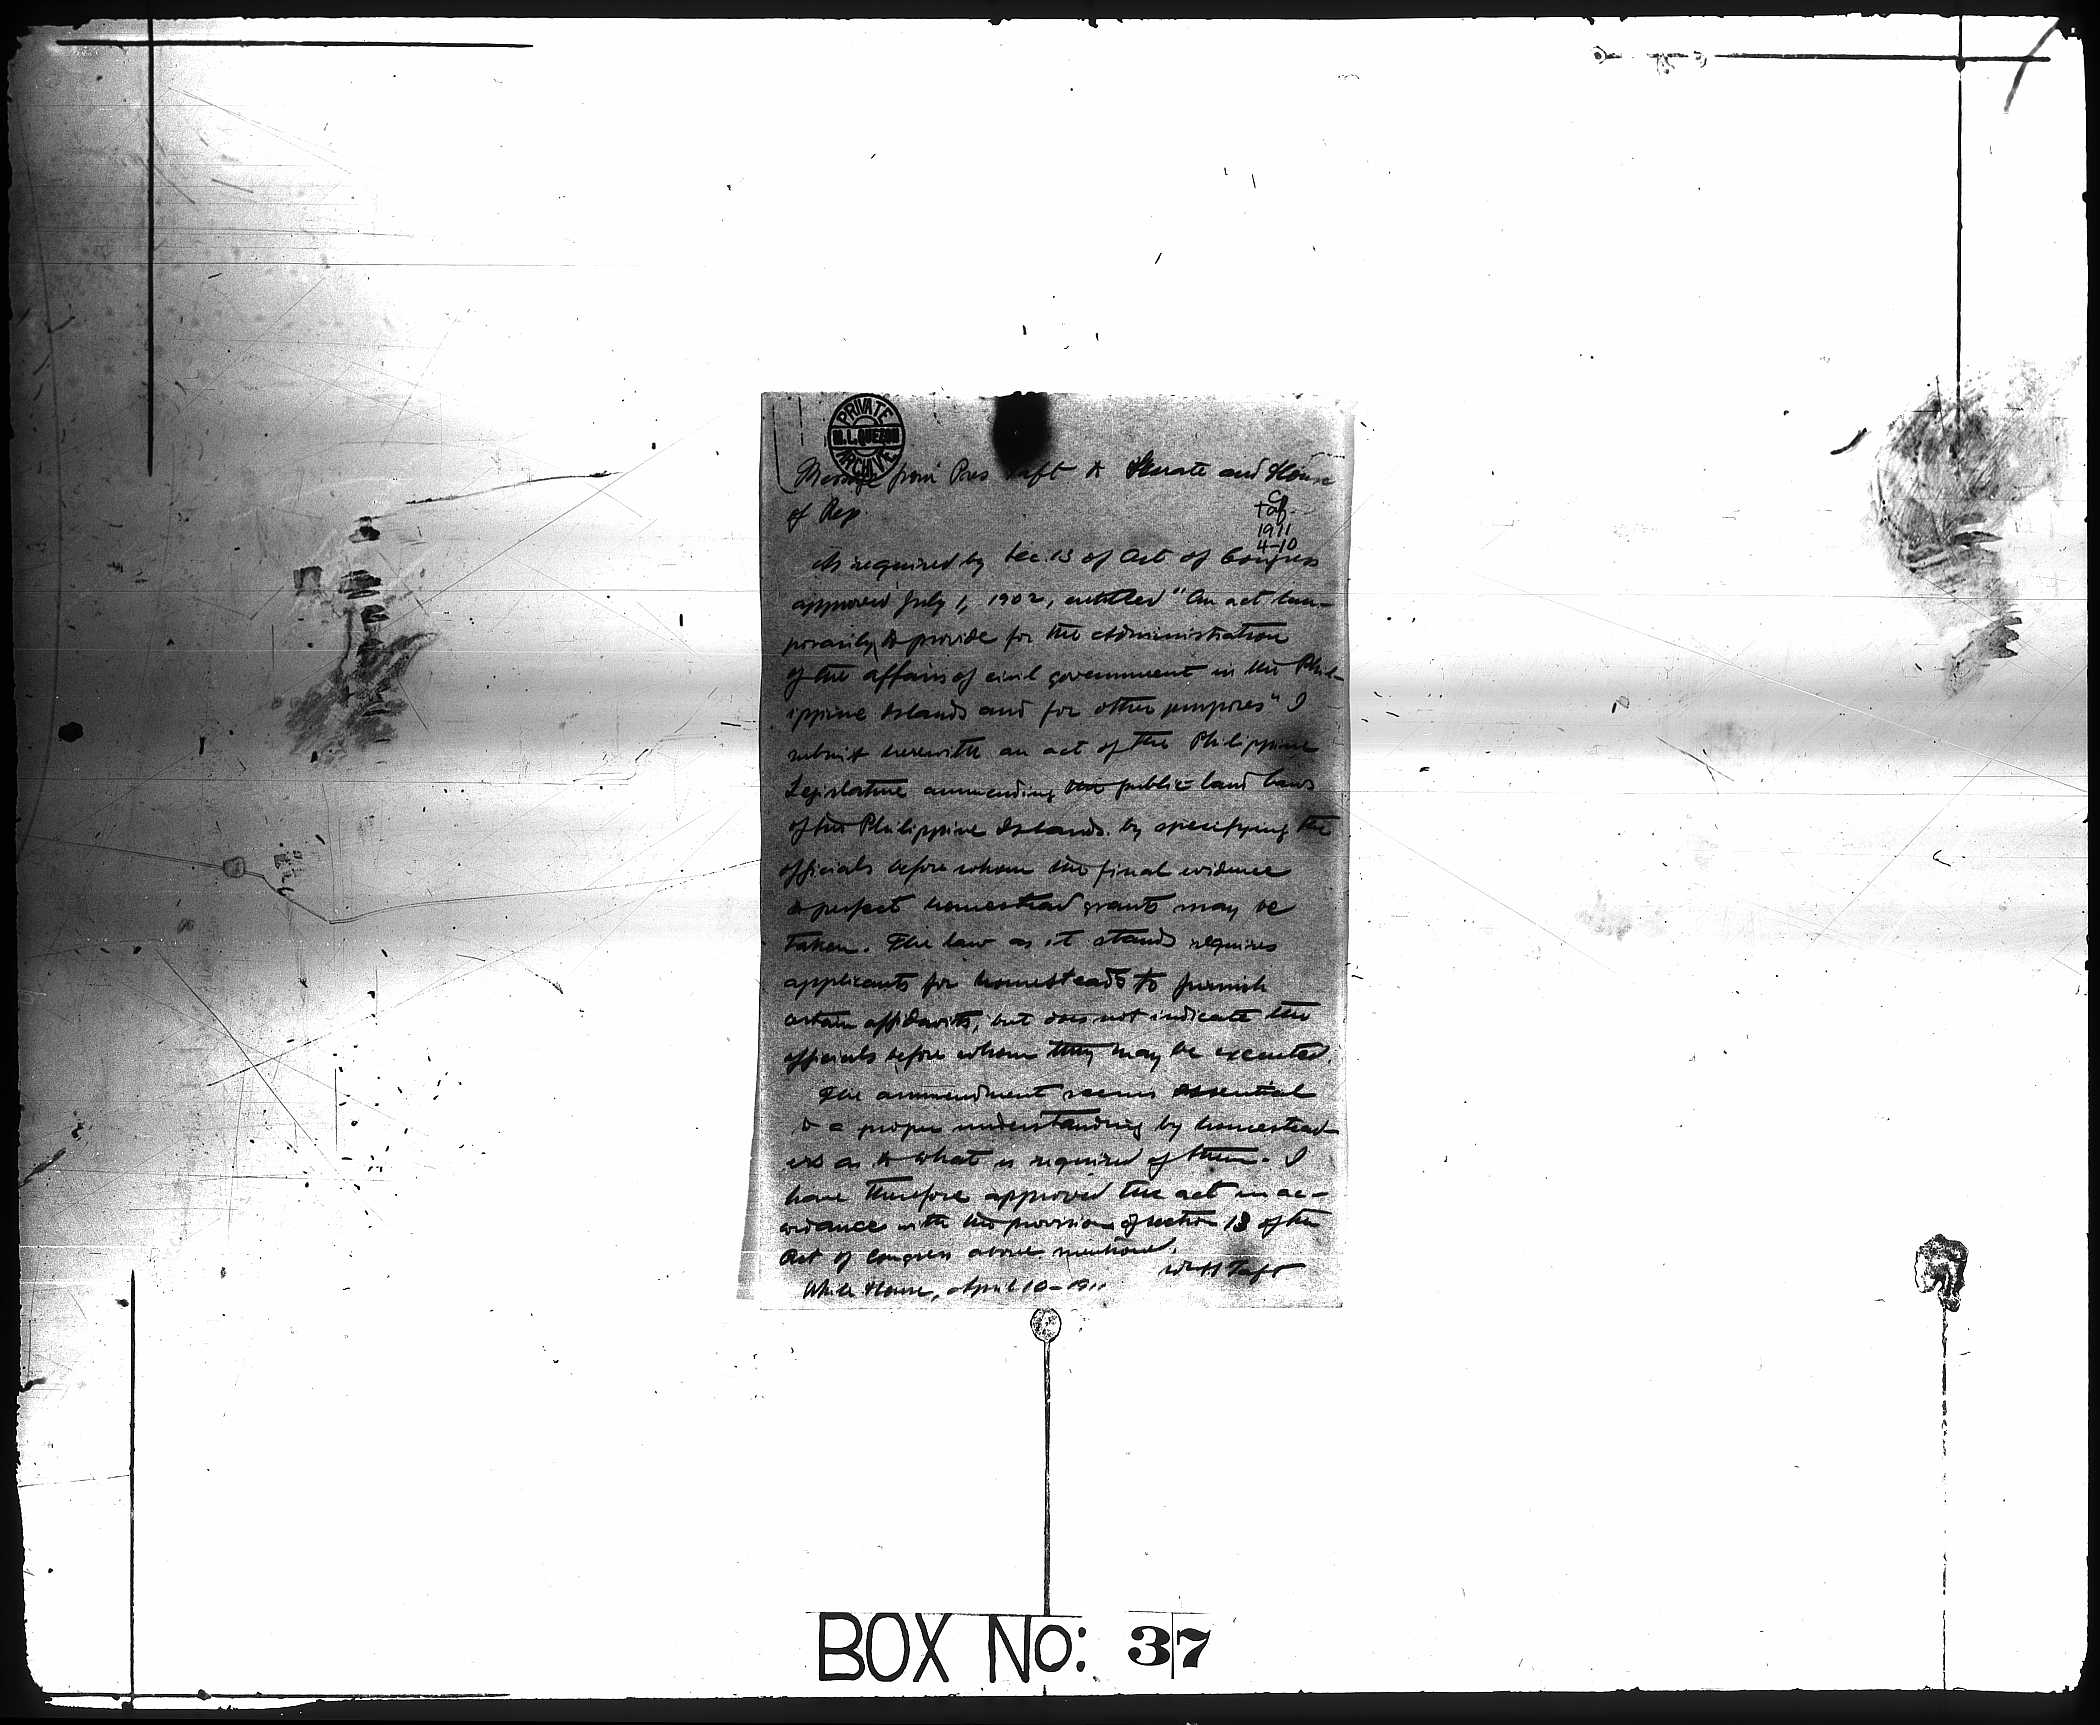 PRIVATE
M.L. QUEZON
ARCHIVE
Message from Pres Taft to Senate and House
of Rep.
C
Taf.
1911
4-10
As required by Sec. 13 of Act of Congress
approved July 1, 1902, entitled "An act tem-
porarily to provide for the administration
of the affairs of civil government in the Phil-
ippine Islands and for other purposes" I
submit herewith an act of the Philippine
Legislature ammending the public-land laws
of the Philippine Islands by specifying the
officials before whom the final evidence
to perfect homestead grants may be
taken. The law as it stands requires
applicants for homesteads to furnish
certain affidavits, but does not indicate the
officials before whom they may be executed.
The ammendment seems essential
to a proper understanding by homestead-
ers as to what is required of them. I
have therefore approved the act in ac-
cordance with the provision of section 13 of the
Act of Congress above mentioned.
Wm H Taft
White House, April 10-1911
BOX No: 37